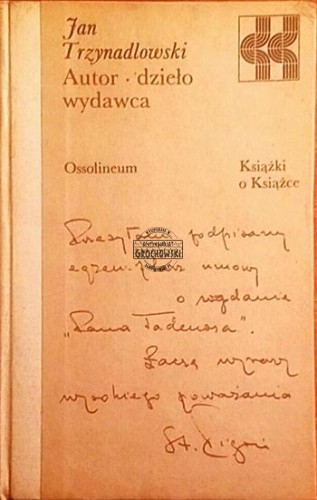 Jan
Trzynadlowski
Autor · dzieło
wydawca
Ossolineum
Książki
o Książce
GROCHOWSKI
Przesyłam podpisany
egzemplarz umowy
o wydanie
„Pana Tadeusza".
Łączę wyrazy
wysokiego poważania
St. Pigoń